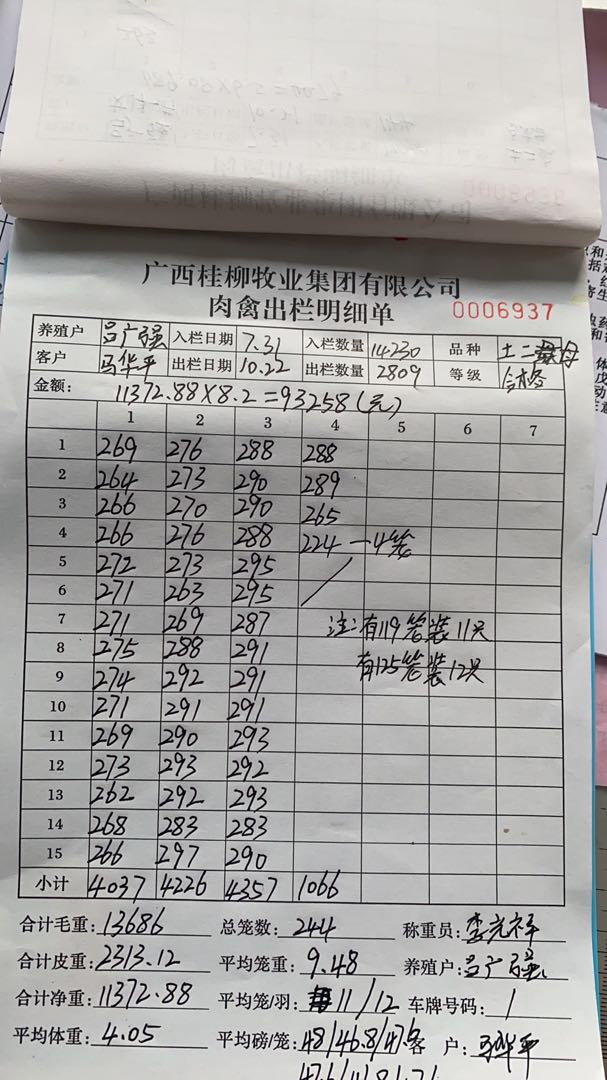 广西桂柳牧业集团有限公司
肉禽出栏明细单 0006937
养殖户 吕广强 入栏日期 7.31 入栏数量 14230 品种 土二
客户 马华平 出栏日期 10.22 出栏数量 2809 等级 合格
金额: 11372.88×8.2=93258(元)
1 2 3 4 5 6 7
1 269 276 288 288
2 264 273 290 289
3 266 270 290 265
4 266 276 288 224 一4笼
5 272 273 295
6 271 263 295
7 271 269 287 注:有119笼装11只
8 275 288 291 有125笼装12只
9 274 292 291
10 271 291 291
11 269 290 293
12 273 293 292
13 262 292 293
14 268 283 283
15 266 297 290
小计 4037 4226 4357 1066
合计毛重: 13686 总笼数: 244 称重员: 李光祥
合计皮重: 2313.12 平均笼重: 9.48 养殖户: 吕广强
合计净重: 11372.88 平均笼/羽: 11/12 车牌号码: 1
平均体重: 4.05 平均磅/笼: 48/46.8/47.6 客 户: 马华平